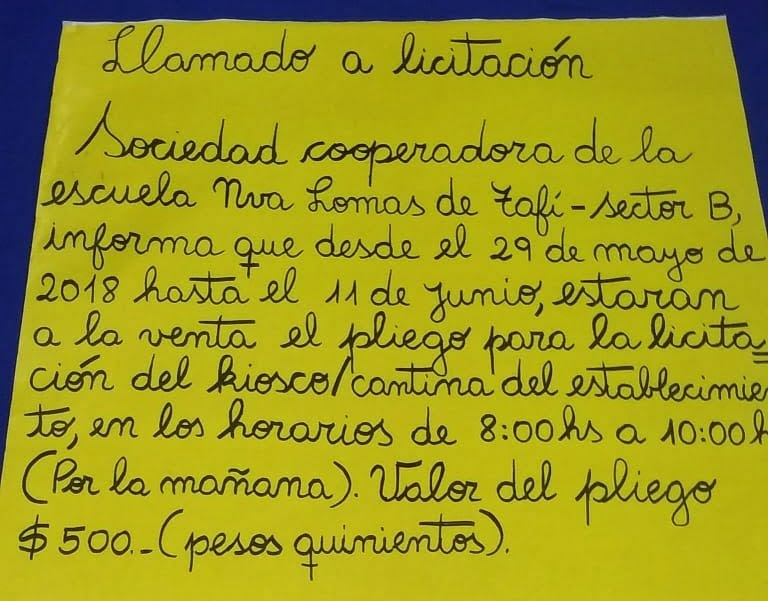 Llamado a licitación
Sociedad cooperadora de la
escuela Nva Lomas de Tafí-sector B,
informa que desde el 29 de mayo de
2018 hasta el 11 de junio, estaran
a la venta el pliego para la licita=
ción del kiosco/cantina del establecimie
to, en los horarios de 8:00hs a 10:00h
(Por la mañana). Valor del pliego
$500.-(pesos quinientos).